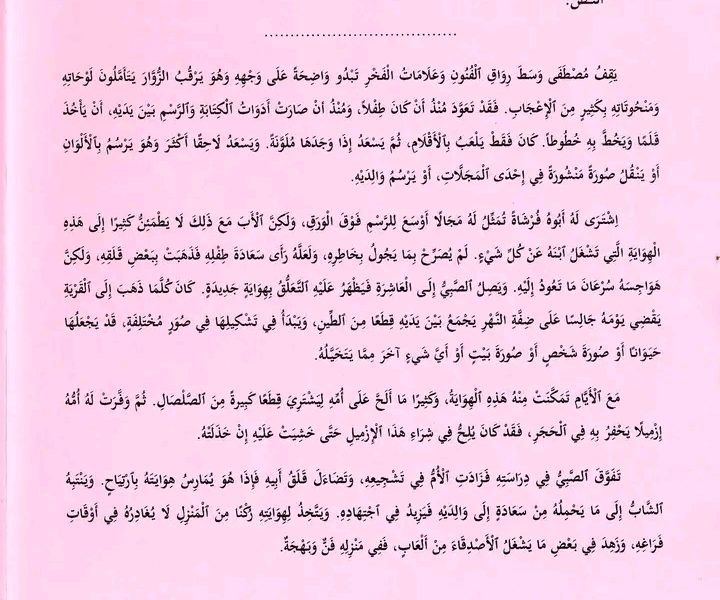 النص:
........................................
يَقِفُ مُصْطَفَى وَسَطَ رِوَاقِ ٱلْفُنُونِ وَعَلَامَاتُ الْفَخْرِ تَبْدُو وَاضِحَةً عَلَى وَجْهِهِ وَهُوَ يَرْقُبُ الزُّوَّارَ يَتَأَمَّلُونَ لَوْحَاتِهِ
وَمَنْحُوتَاتِهِ بِكَثِيرٍ مِنَ ٱلْإِعْجَابِ. فَقَدْ تَعَوَّدَ مُنْذُ أَنْ كَانَ طِفْلًا، وَمُنْذُ أَنْ صَارَتْ أَدَوَاتُ الْكِتَابَةِ وَٱلرَّسْمِ بَيْنَ يَدَيْهِ، أَنْ يَأْخُذَ
قَلَمًا وَيَخُطَّ بِهِ خُطُوطاً. كَانَ فَقَطْ يَلْعَبُ بِٱلْأَقْلَامِ، ثُمَّ يَسْعَدُ إِذَا وَجَدَهَا مُلَوَّنَةً. وَيَسْعَدُ لَاحِقًا أَكْثَرَ وَهُوَ يَرْسُمُ بِٱلْأَلْوَانِ
أَوْ يَنْقُلُ صُورَةً مَنْشُورَةً فِي إِحْدَى ٱلْمَجَلَّاتِ، أَوْ يَرْسُمُ وَالِدَيْهِ.
اِشْتَرَى لَهُ أَبُوهُ فُرْشَاةً تُمَثِّلُ لَهُ مَجَالًا أَوْسَعَ لِلرَّسْمِ فَوْقَ الْوَرَقِ، وَلَكِنَّ ٱلْأَبَ مَعَ ذَلِكَ لَا يَطْمَئِنُّ كَثِيرًا إِلَى هَذِهِ
الْهِوَايَةِ الَّتِي تَشْغَلُ ٱبْنَهُ عَنْ كُلِّ شَيْءٍ. لَمْ يُصَرِّحْ بِمَا يَجُولُ بِخَاطِرِهِ، وَلَعَلَّهُ رَأَى سَعَادَةَ طِفْلِهِ فَذَهَبَتْ بِبَعْضِ قَلَقِهِ، وَلَكِنَّ
هَوَاجِسَهُ سُرْعَانَ مَا تَعُودُ إِلَيْهِ. وَيَصِلُ الصَّبِيُّ إِلَى ٱلْعَاشِرَةِ فَيَظْهَرُ عَلَيْهِ ٱلتَّعَلُّقُ بِهِوَايَةٍ جَدِيدَةٍ. كَانَ كُلَّمَا ذَهَبَ إِلَى ٱلْقَرْيَةِ
يَقْضِي يَوْمَهُ جَالِسًا عَلَى ضِفَّةِ النَّهْرِ يَجْمَعُ بَيْنَ يَدَيْهِ قِطَعًا مِنَ الطِّينِ، وَيَبْدَأُ فِي تَشْكِيلِهَا فِي صُوَرٍ مُخْتَلِفَةٍ، قَدْ يَجْعَلُهَا
حَيَوَانًا أَوْ صُورَةَ شَخْصٍ أَوْ صُورَةَ بَيْتٍ أَوْ أَيَّ شَيْءٍ آخَرَ مِمَّا يَتَخَيَّلُهُ.
مَعَ ٱلْأَيَّامِ تَمَكَّنَتْ مِنْهُ هَذِهِ ٱلْهِوَايَةُ، وَكَثِيرًا مَا أَلَحَّ عَلَى أُمِّهِ لِيَشْتَرِيَ قِطَعًا كَبِيرَةً مِنَ ٱلصَّلْصَالِ. ثُمَّ وَفَّرَتْ لَهُ أُمُّهُ
إِزْمِيلًا يَحْفِرُ بِهِ فِي ٱلْحَجَرِ، فَقَدْ كَانَ يُلِحُّ فِي شِرَاءِ هَذَا ٱلْإِزْمِيلِ حَتَّى خَشِيَتْ عَلَيْهِ إِنْ خَذَلَتْهُ.
تَفَوَّقَ ٱلصَّبِيُّ فِي دِرَاسَتِهِ فَزَادَتِ ٱلْأُمُّ فِي تَشْجِيعِهِ، وَتَضَاءَلَ قَلَقُ أَبِيهِ فَإِذَا هُوَ يُمَارِسُ هِوَايَتَهُ بِٱرْتِيَاحٍ. وَيَنْتَبِهُ
الشَّابُّ إِلَى مَا يَحْمِلُهُ مِنْ سَعَادَةٍ إِلَى وَالِدَيْهِ فَيَزِيدُ فِي ٱجْتِهَادِهِ. وَيَتَّخِذُ لِهِوَايَتِهِ رُكْنًا مِنَ ٱلْمَنْزِلِ لَا يُغَادِرُهُ فِي أَوْقَاتِ
فَرَاغِهِ، وَزَهِدَ فِي بَعْضِ مَا يَشْغَلُ ٱلْأَصْدِقَاءَ مِنْ أَلْعَابٍ، فَفِي مَنْزِلِهِ فَنٌّ وَبَهْجَةٌ.